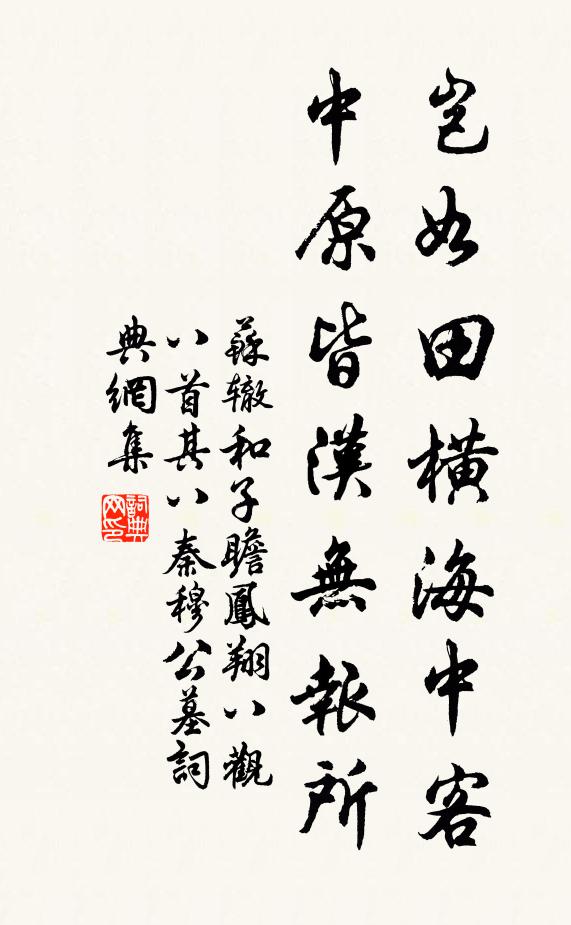 豈如田橫海中客
中原皆漢無報所
蘇轍和子瞻鳳翔八觀
八首其八秦穆公墓詞
典網集
詞典
网印